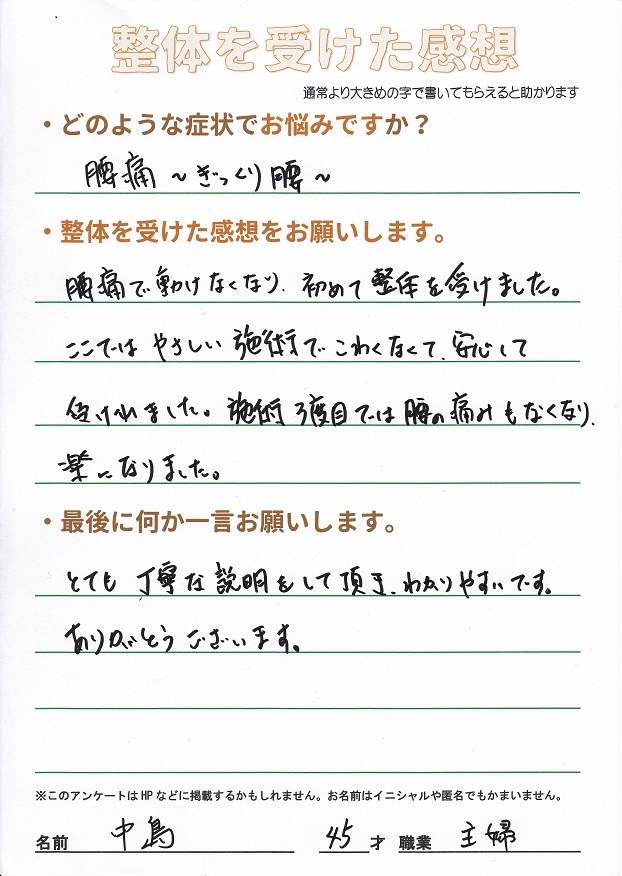 整体を受けた感想
通常より大きめの字で書いてもらえると助かります
・どのような症状でお悩みですか？
腰痛 ～ぎっくり腰～
・整体を受けた感想をお願いします。
腰痛で動けなくなり、初めて整体を受けました。
ここでは やさしい 施術で こわくなくて、安心して
受けれました。施術 3度目では 腰の痛みもなくなり、
楽になりました。
・最後に何か一言お願いします。
とても 丁寧な 説明をして頂き、わかりやすいです。
ありがとうございます。
※このアンケートはHPなどに掲載するかもしれません。お名前はイニシャルや匿名でもかまいません。
名前 中島 45才 職業 主婦